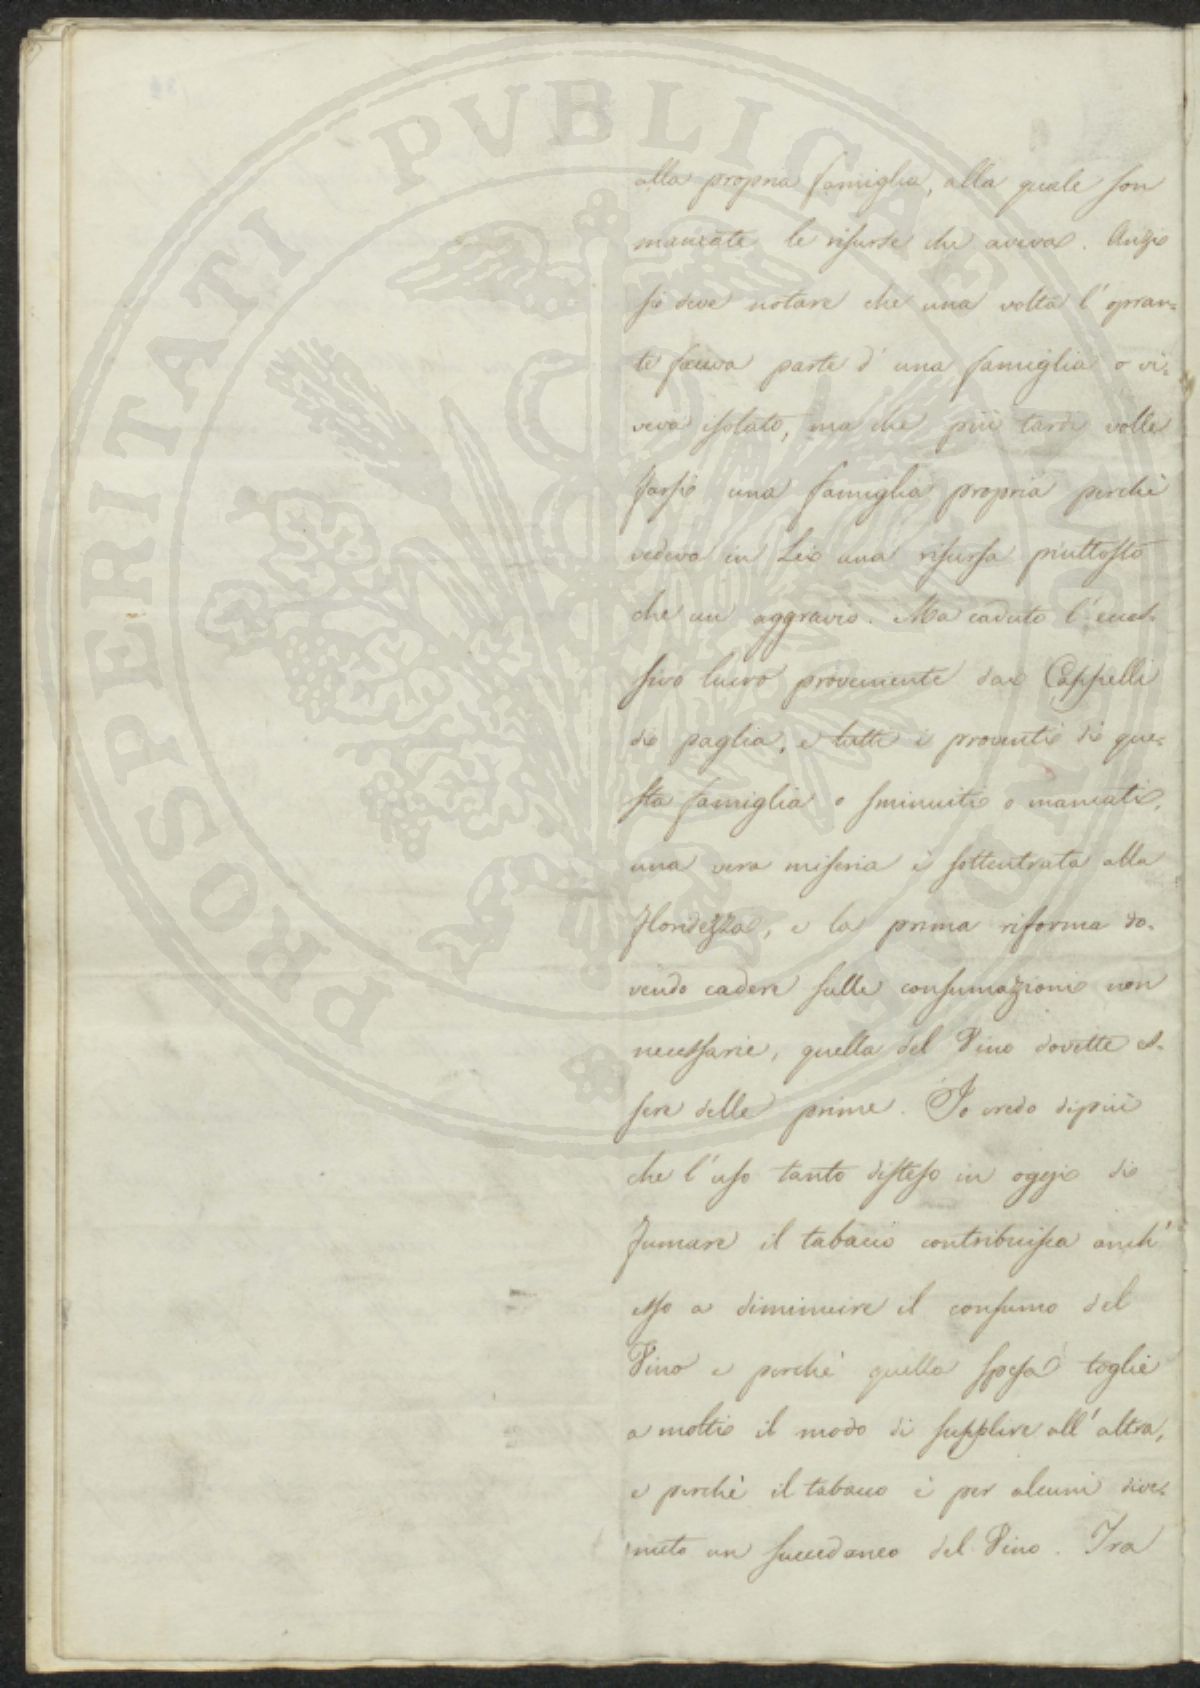 alla propria famiglia, alla quale son
mancate le risurse che aveva. Anzi
si deve notare che una volta l'opran-
te faceva parte d'una famiglia o vi-
veva isolato, ma che più tardi volle
farsi una famiglia propria perchè
vedeva in Lei una risursa piuttosto
che un aggravio. Ma caduto l'eces-
sivo lucro proveniente dai Cappelli
di paglia, e tutti i proventi di que-
sta famiglia o sminuiti o mancati,
una vera miseria è sottentrata alla
floridezza, e la prima riforma do-
vendo cadere sulle consumazioni non
necessarie, quella del Vino dovette es-
sere delle prime. Io credo dipiù
che l'uso tanto disteso in oggi di
fumare il tabacco contribuisca anch'
esso a diminuire il consumo del
Vino e perchè quella spesa toglie
a molti il modo di supplire all'altra,
e perchè il tabacco è per alcuni dive-
nuto un succedaneo del Vino. Tra
PROSPERITATI PVBLICAE